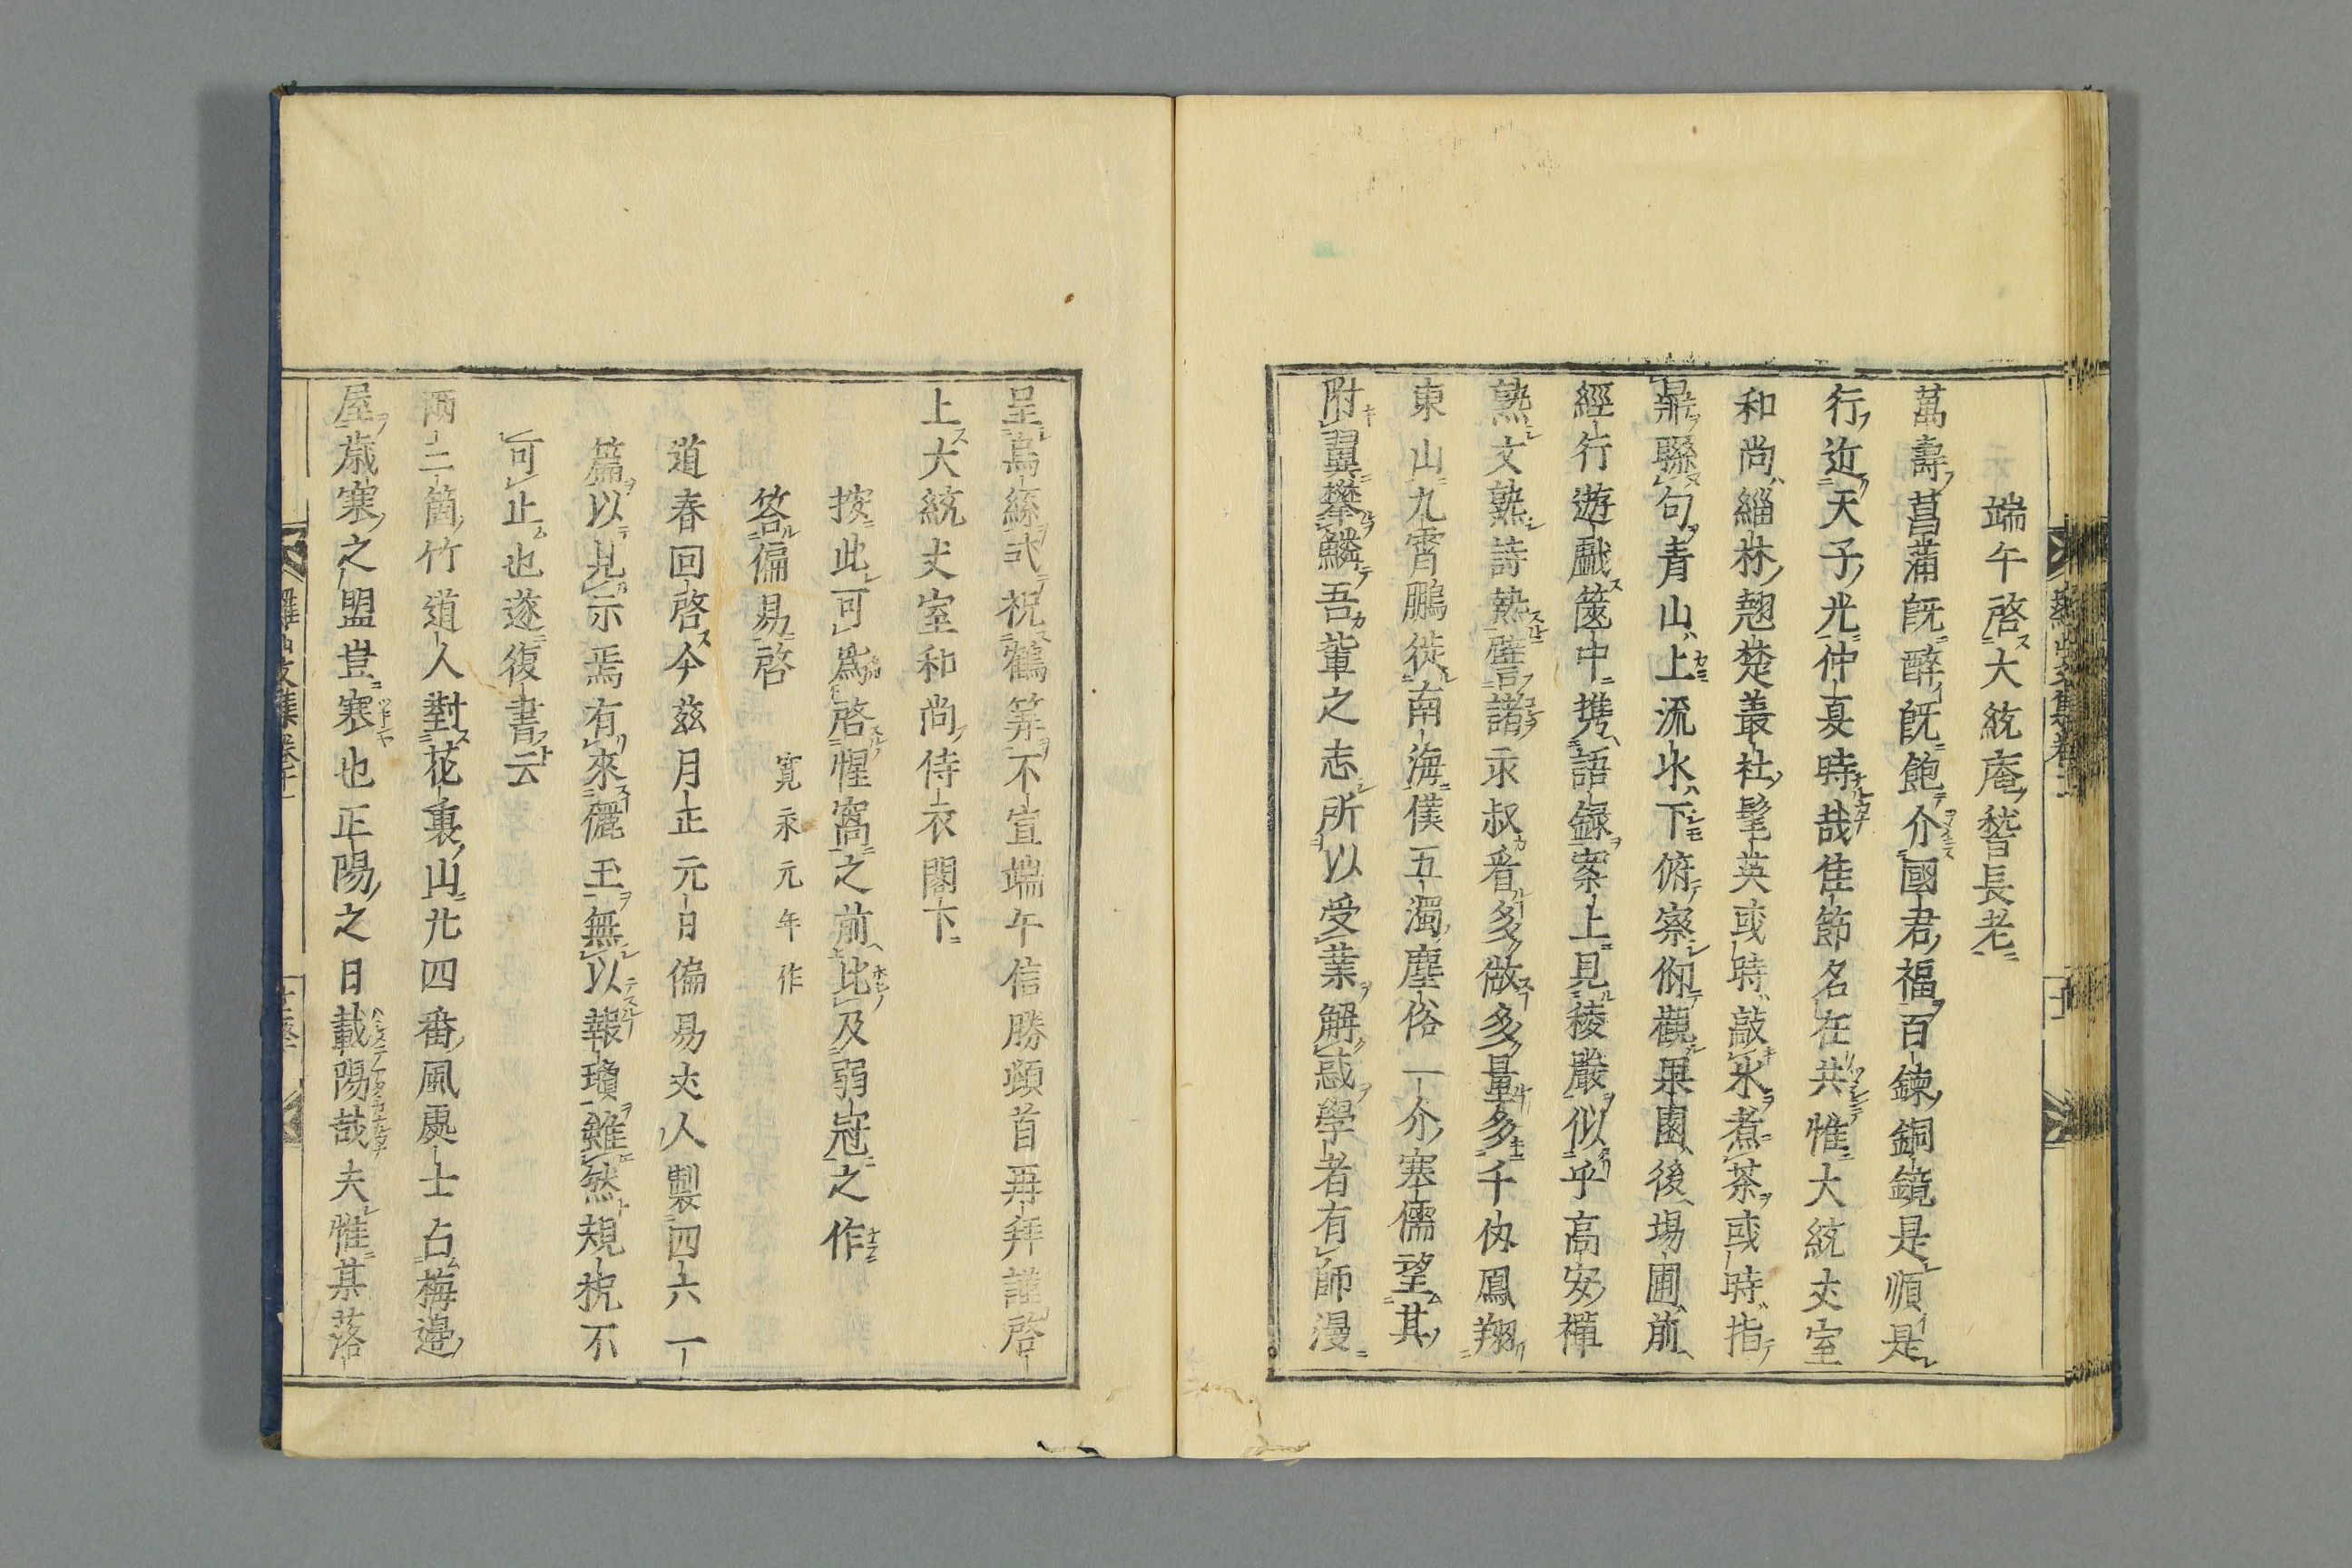 端午啓大統庵稽長老
萬壽菖蒲既醉既飽介國君福百鍊銅鏡是順是
行近天子光仲夏時哉佳節名在共惟大統丈室
和尚緇林翹楚叢社髦英或時敲氷煮茶或時指
鼎聯句青山上流水下俯察仰觀果園後場圃前
經行遊戲篋中携語録案上見稜嚴似乎高安禪
熟文熟詩熟譬諸永叔看多做多量多千仭鳳翔
東山九霄鵬徙南海僕五濁塵俗一介寒儒望其
附翼攀鱗吾軰之志所以受業解惑學者有師漫
呈烏絲弍祝鶴筭不宣端午信勝頓首再拜謹啓
上大統丈室和尚侍衣閣下
按此可爲啓惺窩之前比及弱冠之作
答偏易啓 寛永元年作
道春回啓今茲月正元日偏易丈人製四六一
篇以見示焉有來儷玉無以報瓊雖然規祝不
可止也遂復書云
兩三箇竹道人對花裏山廿四番風處士占梅邊
屋歳寒之盟豈寒也正陽之日載陽哉夫惟某落
羅山文集卷十一